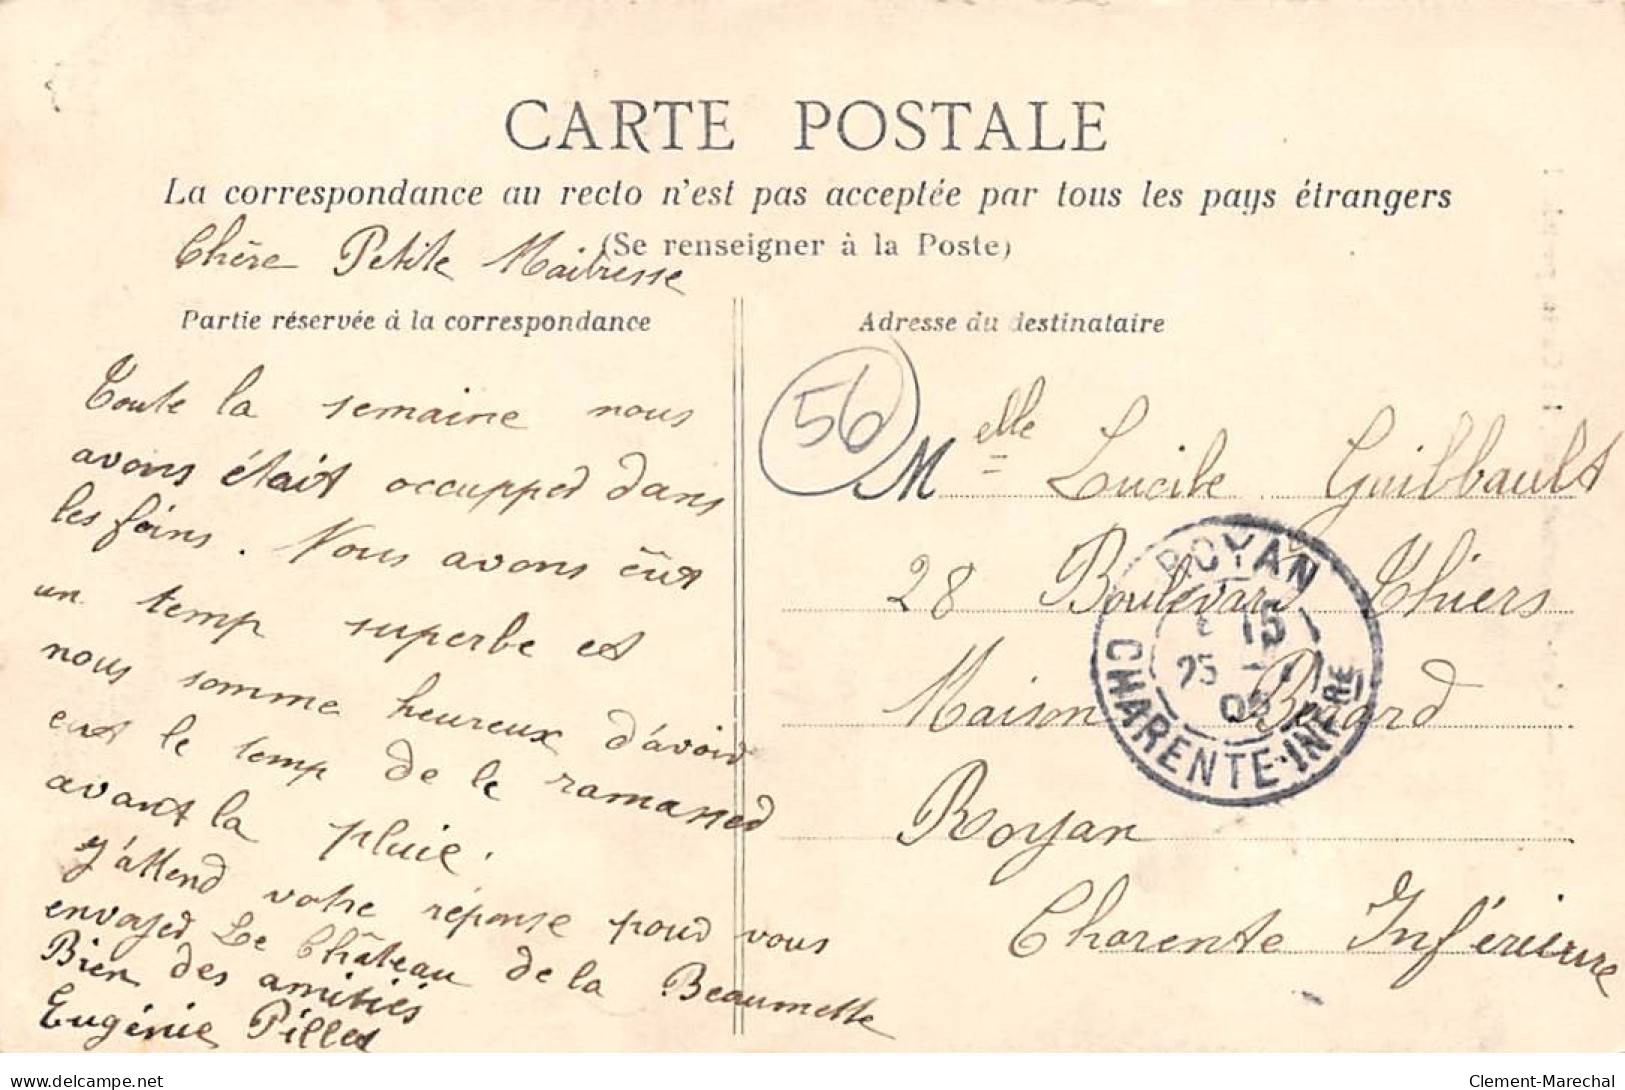 CARTE POSTALE
La correspondance au recto n'est pas acceptée par tous les pays étrangers
(Se renseigner à la Poste)
Chère Petite Maitresse
Partie réservée à la correspondance
Toute la semaine nous
avons était occupped dans
les foins. Nous avons eût
un temp superbe et
nous somme heureux d'avoir
eut le temp de le ramassed
avant la pluie.
J'attend votre réponse pour vous
envoyed Le Château de la Beaumette
Bien des amitiés
Eugénie Pilled
Adresse du destinataire
56
Melle Lucile Guilbault
28 Boulevard Thiers
Maison Bécard
Royan
Charente Inférieure
ROYAN
15
25
CHARENTE-INFRE
delcampe.net
Clement-Marechal